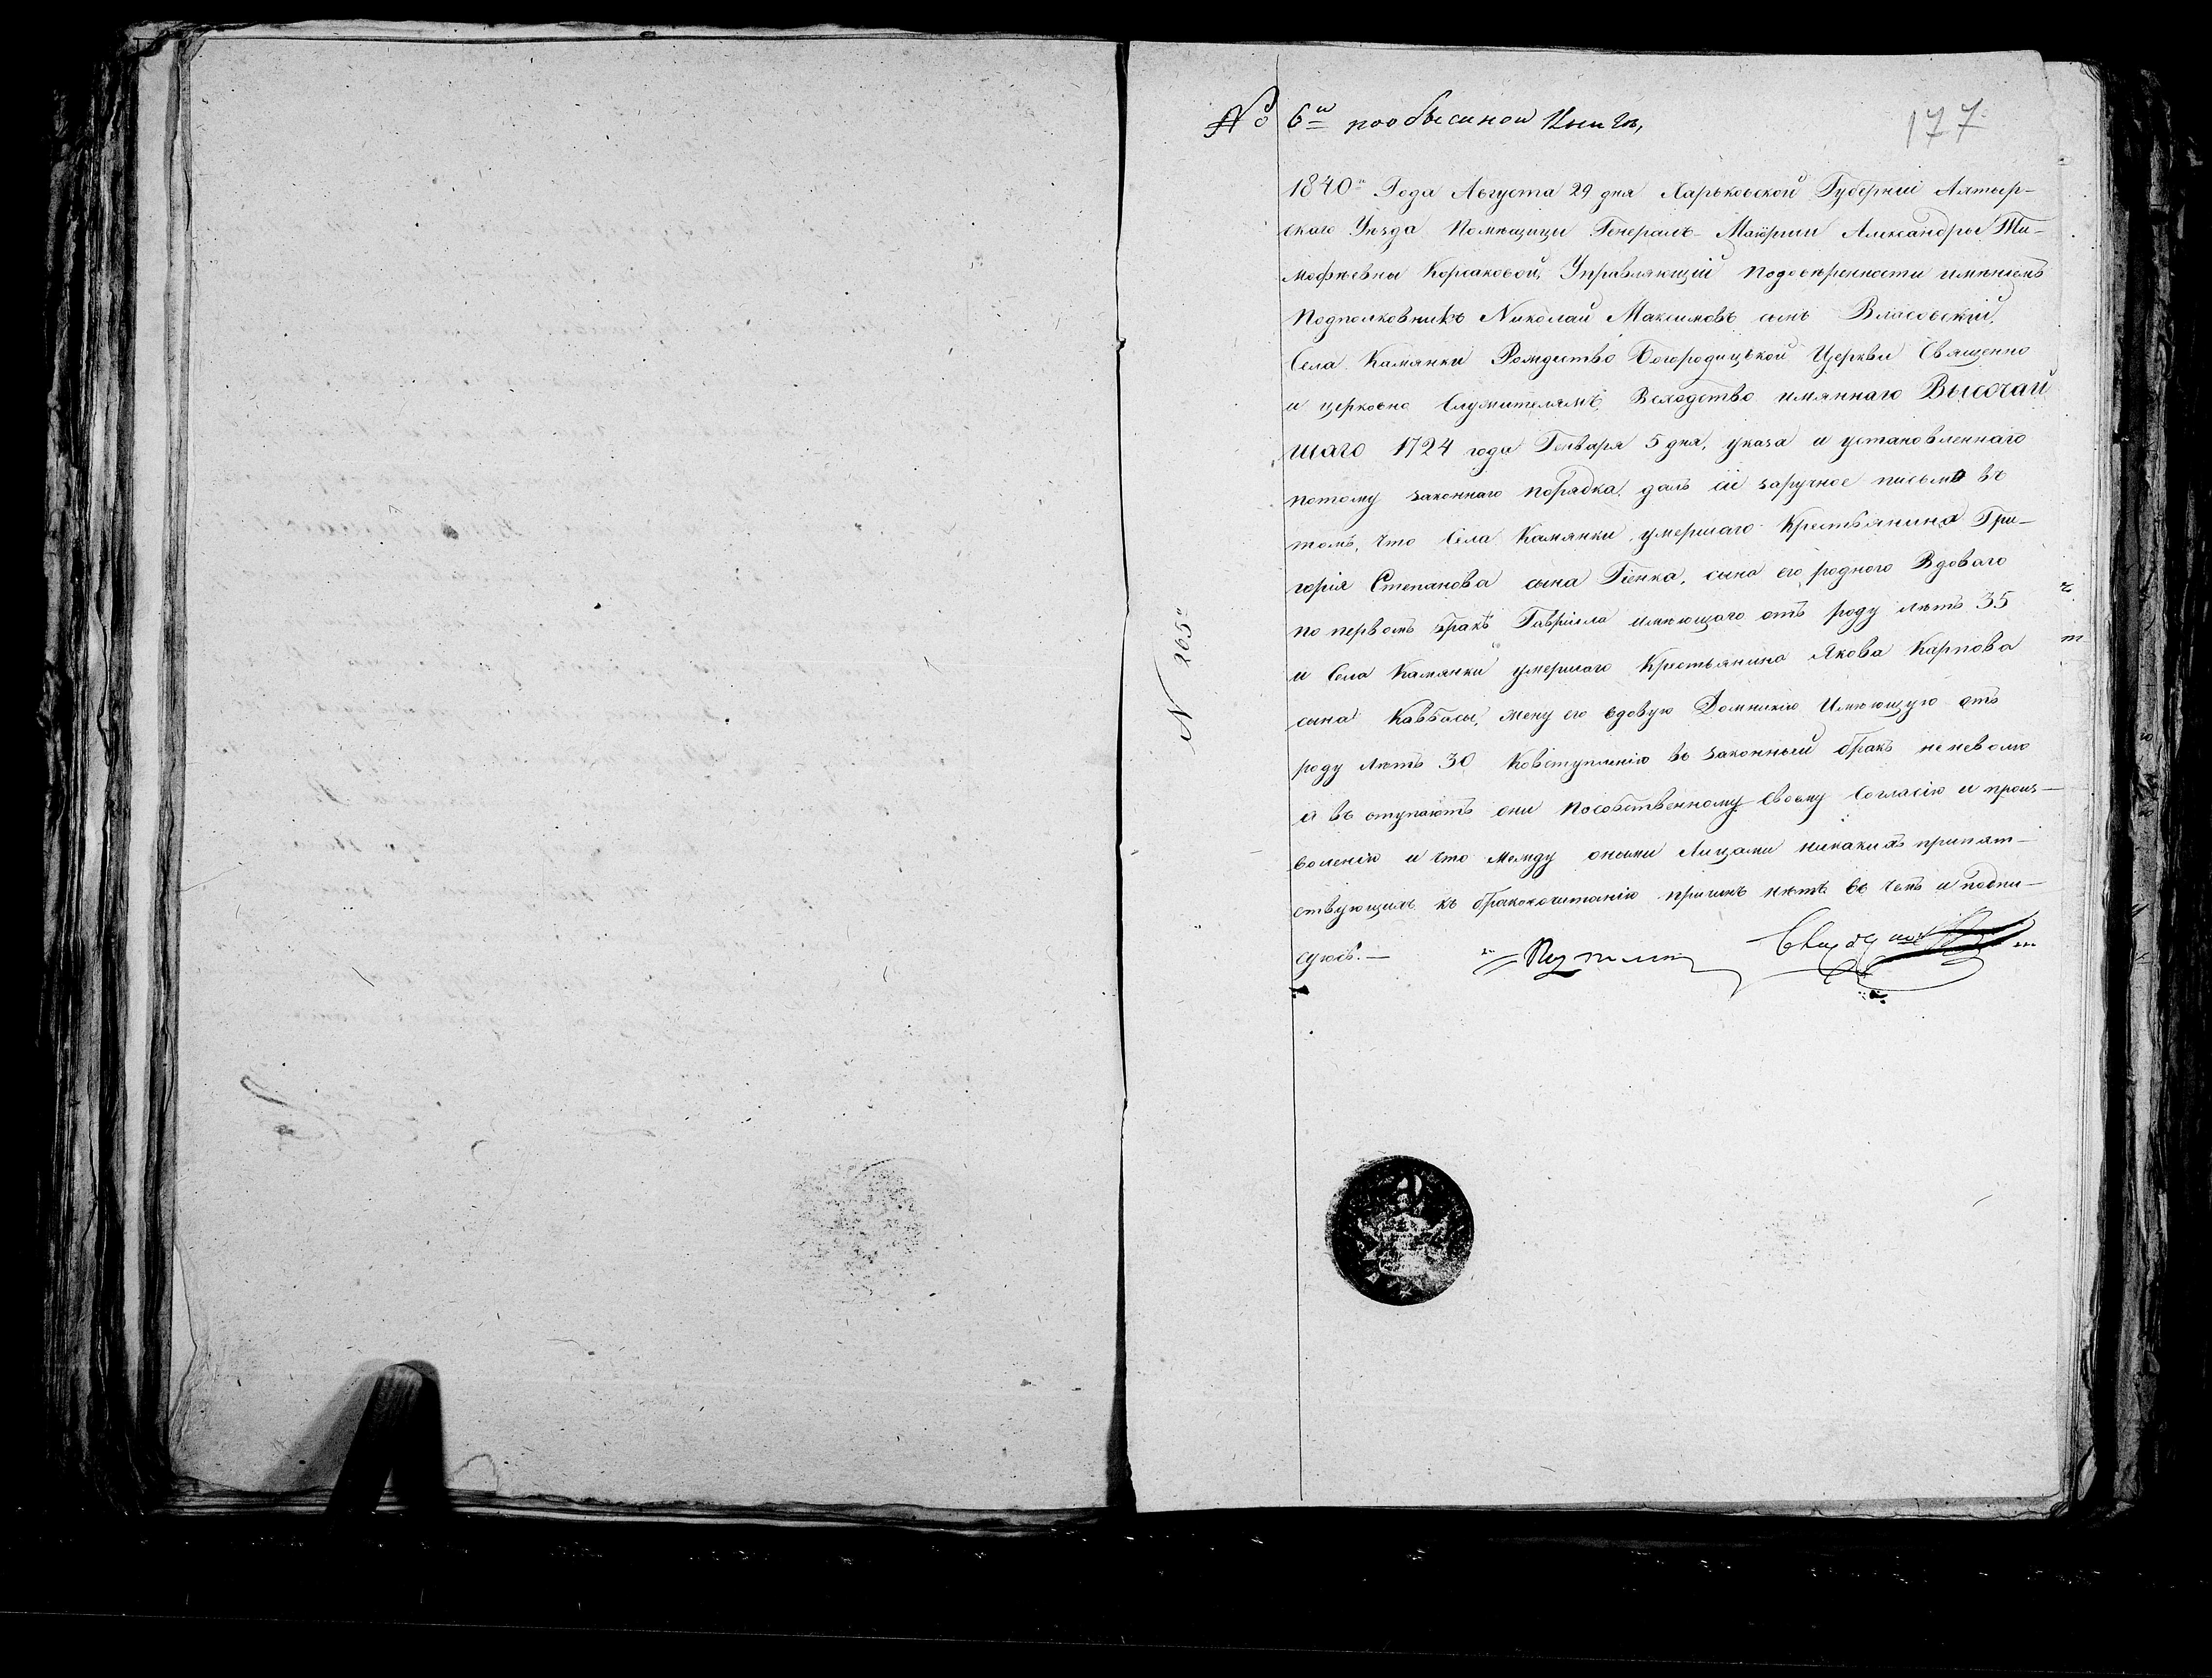 № 6й пообысиной Книгѣ,
177
1840го Года Августа 29 дня Харьковской Губерніи Ахтыр-
скаго Уѣзда Помѣщицы Генералъ-Маіорши Александры Ти-
мофѣевны Корсаковой, Управляющій подовѣренности имѣніемъ
Подполковникъ Николай Максимовъ сынъ Власовскій,
Села Камянки Рождество Богородицькой Церкви Священно
и церковно Служителямъ, Всходство имяннаго Высочай
шаго 1724 года Генваря 5 дня, указа и установленнаго
потому законнаго порядка, далъ сіе заручное письмо въ
томъ, что Села Камянки, умершаго Крестьянина Гри-
горія Степанова сына Гіенка, сына его родного Вдоваго
по первомъ бракѣ Гавріила имѣющаго отъ роду лѣтъ 35
и Села Камянки умершаго Крестьянина Якова Карпова
сына Кавбасы, жену его вдовую Домникію Имѣющую отъ
роду лѣтъ 30 Ковступленію въ законный бракъ неневолю
а въ ступаютъ они Пособственному Своему Согласію и произ-
воленію и что между оными Лицами никакихъ припят-
ствующихъ къ бракосочитанію причинъ нѣтъ въ чемъ и подпи-
суюсь.—
N 265й